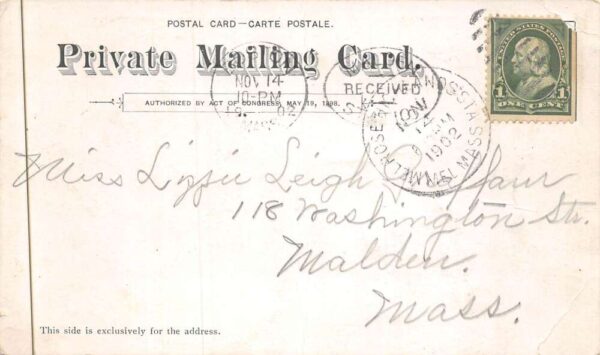 POSTAL CARD—CARTE POSTALE.
Private Mailing Card.
AUTHORIZED BY ACT OF CONGRESS, MAY 19, 1898.
NOV 14
10-PM
RECEIVED
MELROSE
STA
1902
MASS
UNITED STATES
1 ONE CENT 1
Miss Lizzie Leigh
118 Washington Str.
Malden.
Mass.
This side is exclusively for the address.